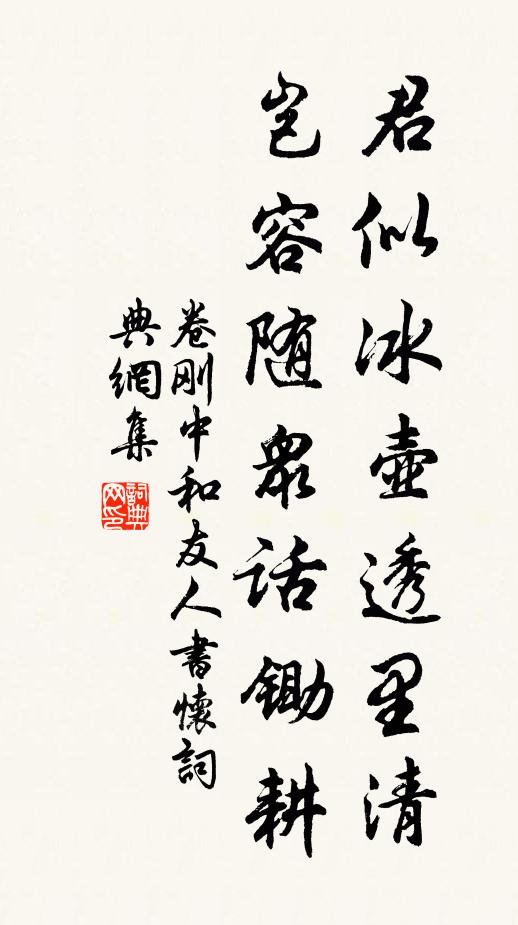 君似冰壺透里清
岂容随衆话鋤耕
卷刚中和友人書懷詞
典網集
詞典网印